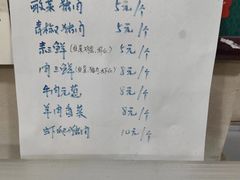 酸菜猪肉 5元/个
青椒猪肉 5元/个
素三鲜(韭菜鸡蛋、虾仁) 5元/个
肉三鲜 8元/个
牛肉元葱 8元/个
羊肉白菜 8元/个
猪肉 10元/个